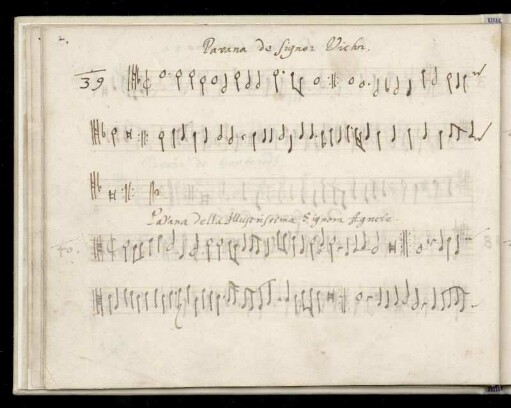 2.
Pavana de Signor
39
Pavana della Illustrissima Signora Agnese.
40.